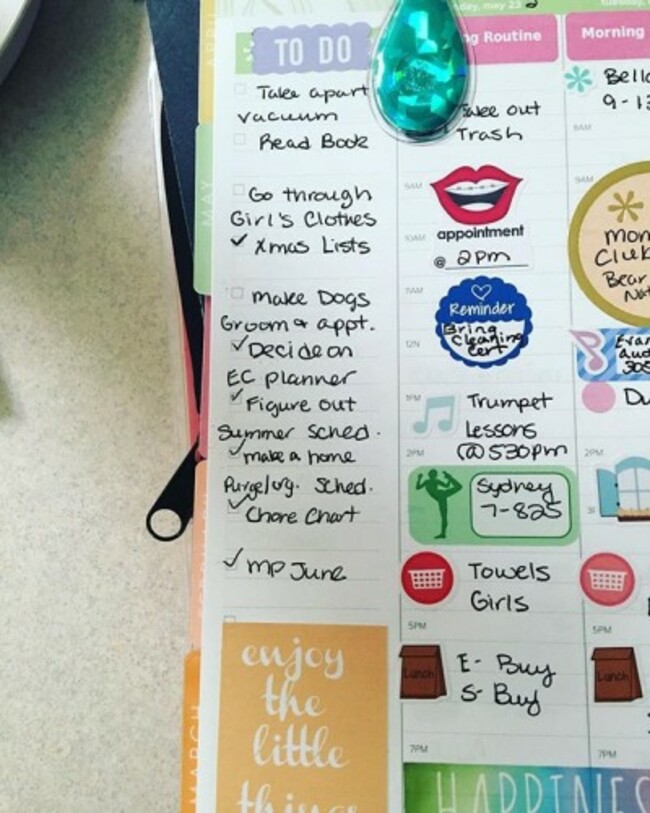 APRIL
MAY
MARCH
day, may 23
tuesday,
TO DO
Take apart
vacuum
Read Book
Go through
Girl's Clothes
Xmas Lists
make Dogs
Groom appt.
Decide on
EC planner
Figure out
Summer Sched.
make a home
Purge/org. Sched.
Chore Chart
MP June
enjoy
the
little
things
ng Routine
Take out
Trash
9AM
appointment
@ 2pm
10AM
11AM
Reminder
Bring
Cleaning
Cert
12N
1PM
Trumpet
Lessons
@530pm
2PM
Sydney
7-825
Towels
Girls
5PM
Lunch
E- Buy
S- Buy
7PM
HAPPINES
Morning
Bella
9-1
8AM
9AM
mon
Club
Bear
Nat
Evan
aud
305
Du
2PM
5PM
Lunch
7PM